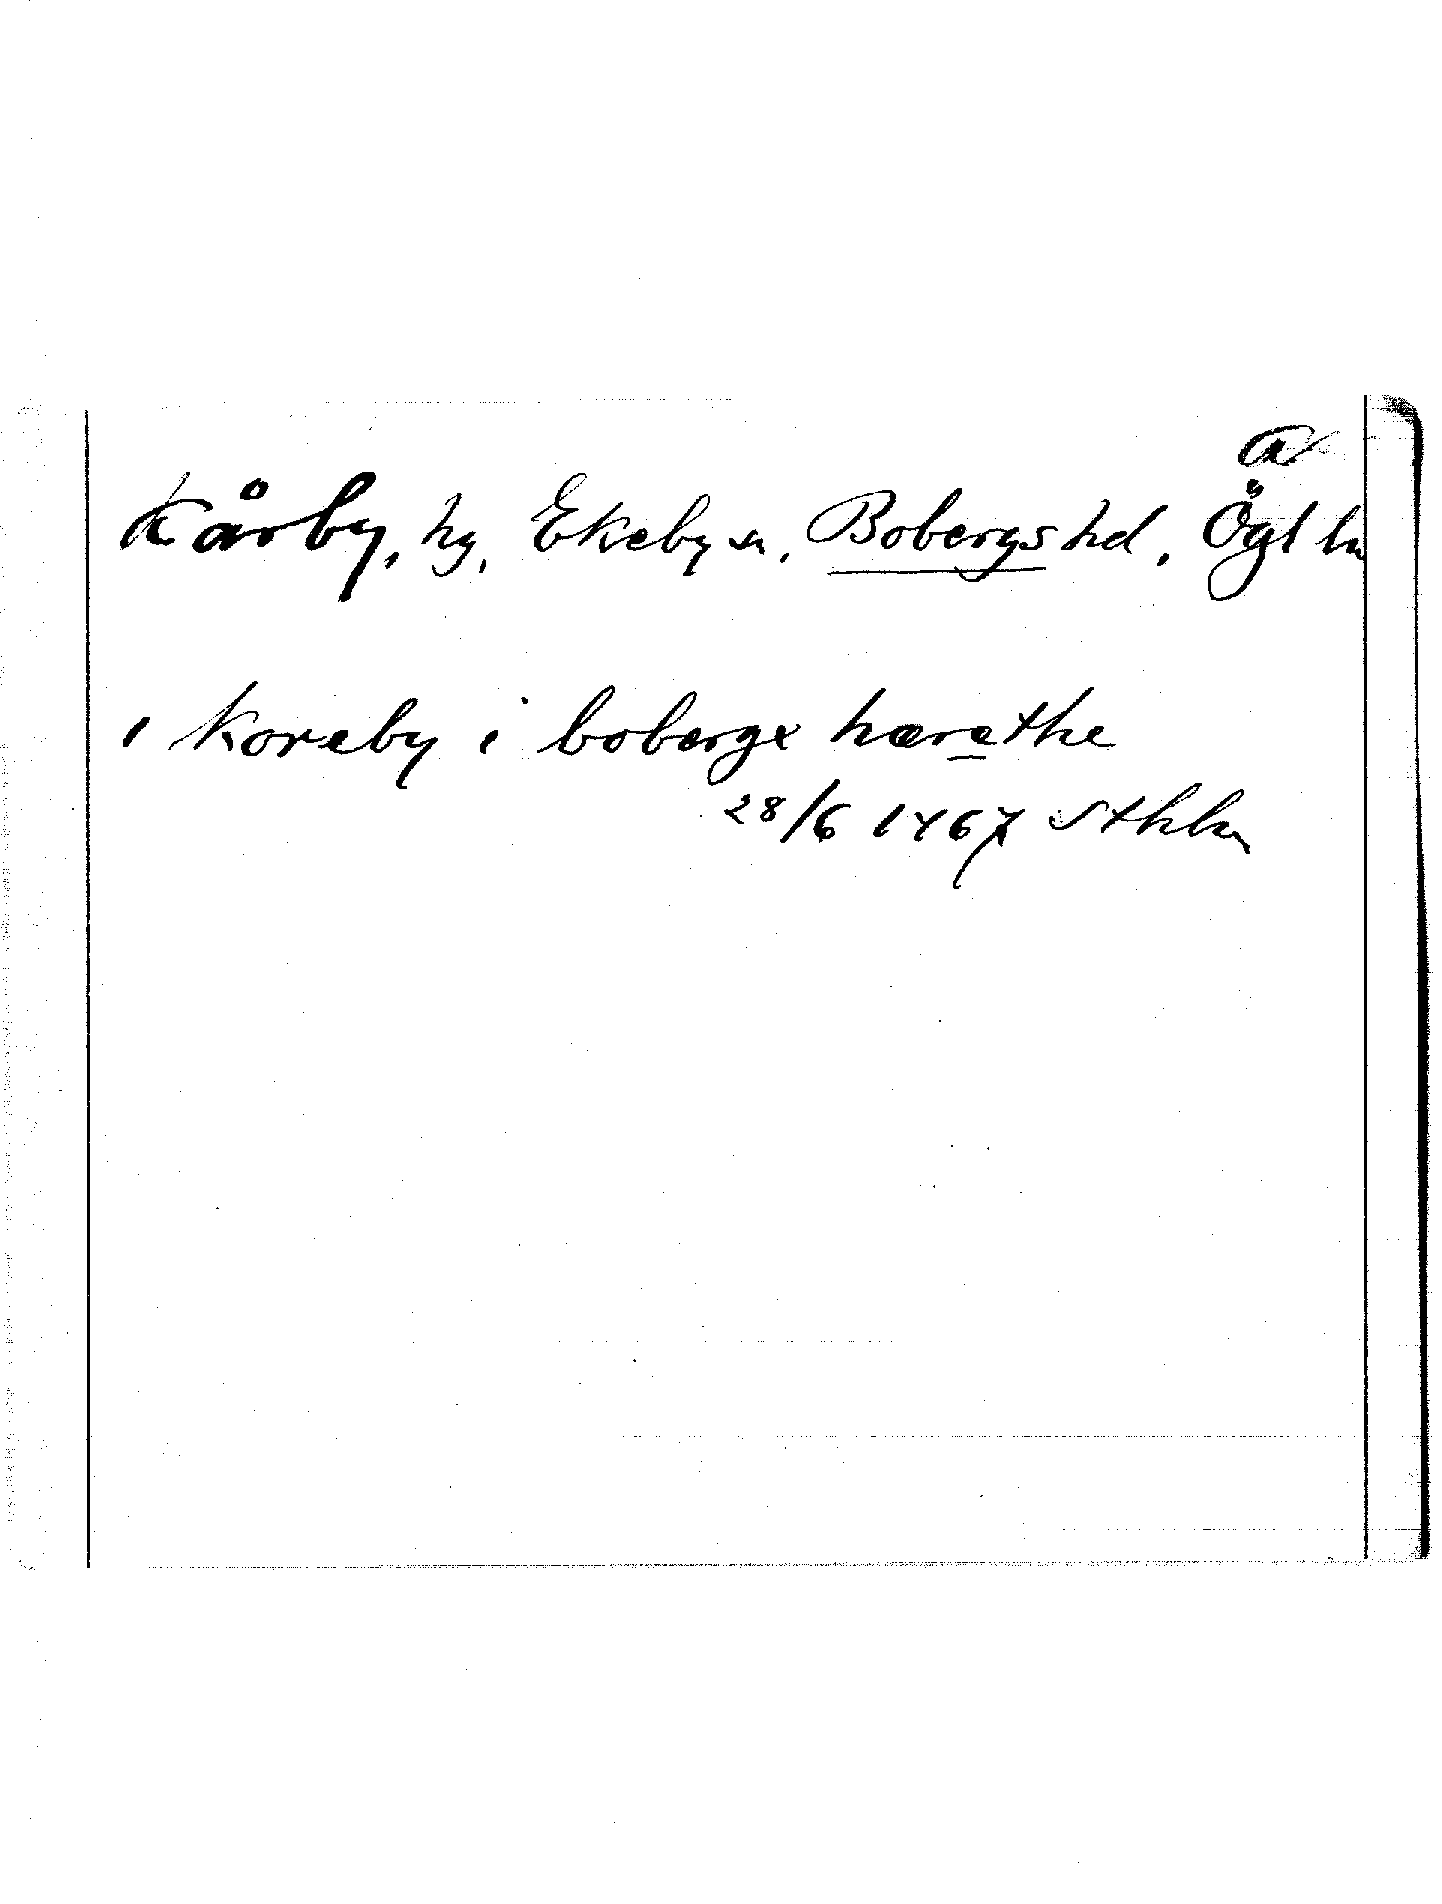 a
Kårby, hg, Ekeby sn, Bobergs hd, Ögl ln
i Koreby i boberge hærethe
28/6 1467 Sthlm